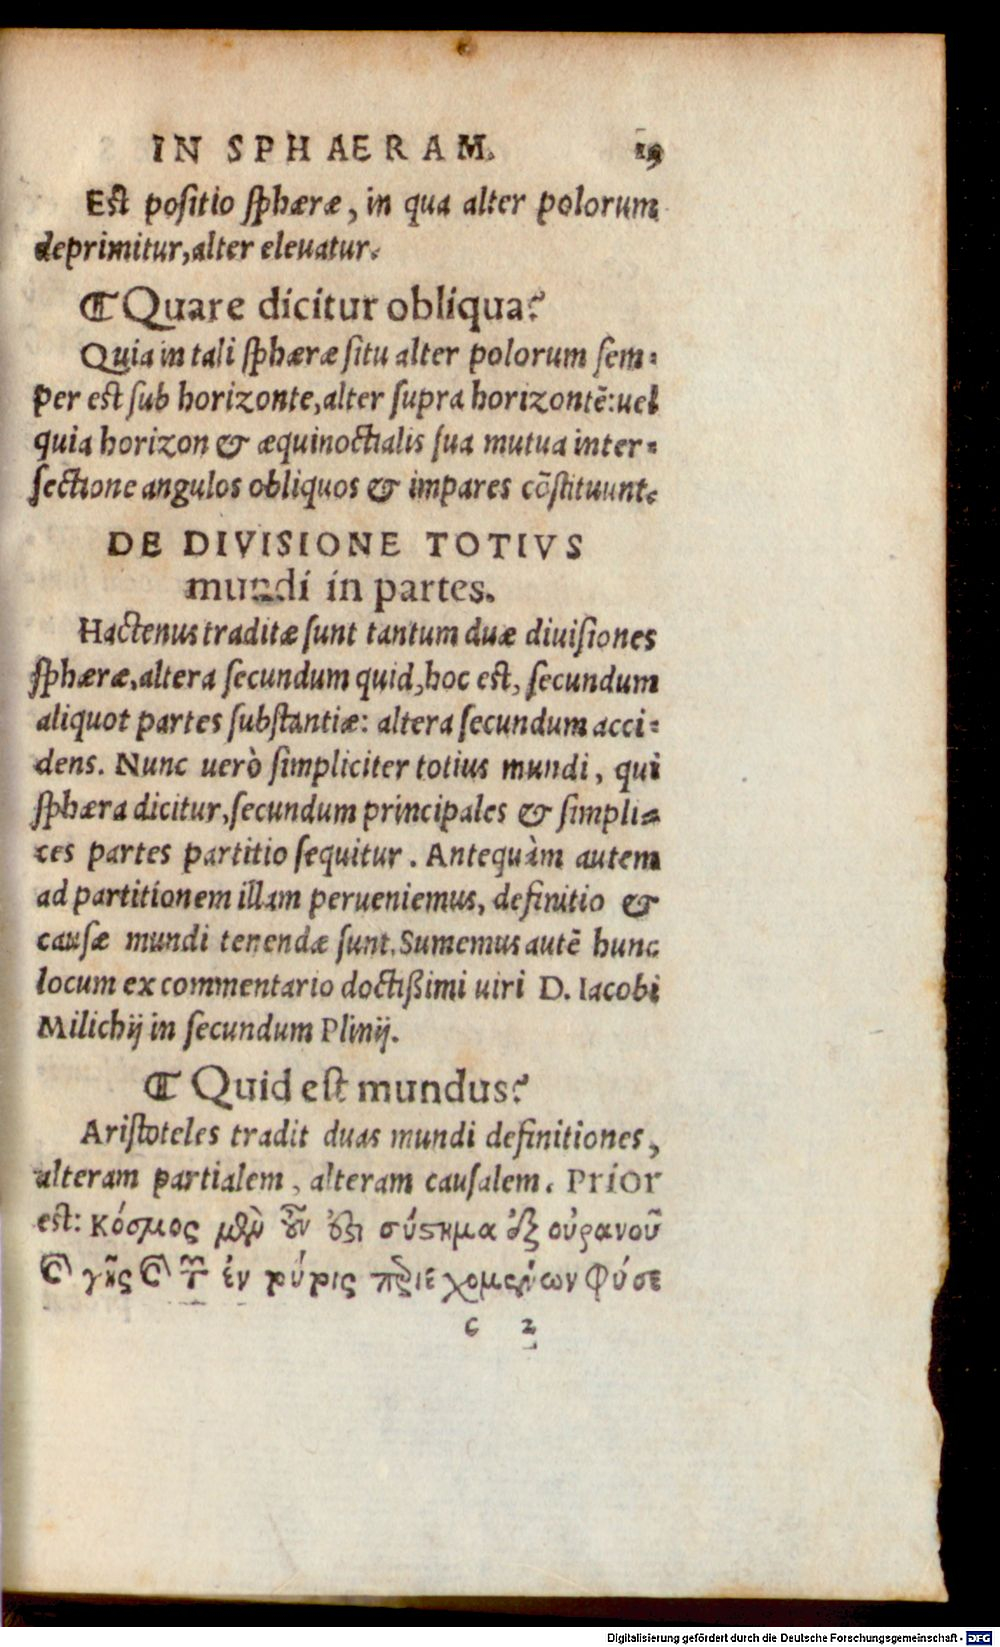 IN SPHAERAM. 19
Est positio sphæræ, in qua alter polorum
deprimitur, alter eleuatur.
¶ Quare dicitur obliqua?
Quia in tali sphæræ situ alter polorum sem-
per est sub horizonte, alter supra horizontē: uel
quia horizon & æquinoctialis sua mutua inter-
sectione angulos obliquos & impares cōstituunt.
DE DIVISIONE TOTIVS
mundi in partes.
Hactenus traditæ sunt tantum duæ diuisiones
sphæræ, altera secundum quid, hoc est, secundum
aliquot partes substantiæ: altera secundum acci-
dens. Nunc uerò simpliciter totius mundi, qui
sphæra dicitur, secundum principales & simpli-
ces partes partitio sequitur. Antequàm autem
ad partitionem illam perueniemus, definitio &
causæ mundi tenendæ sunt. Sumemus autē hunc
locum ex commentario doctißimi uiri D. Iacobi
Milichij in secundum Plinij.
¶ Quid est mundus?
Aristoteles tradit duas mundi definitiones,
alteram partialem, alteram causalem. Prior
est: Κόσμος μὲν οὖν ἐστι σύστημα ἐξ οὐρανοῦ
καὶ γῆς καὶ τῶν ἐν τούτοις περιεχομένων φύσε
c 2
Digitalisierung gefördert durch die Deutsche Forschungsgemeinschaft - DFG